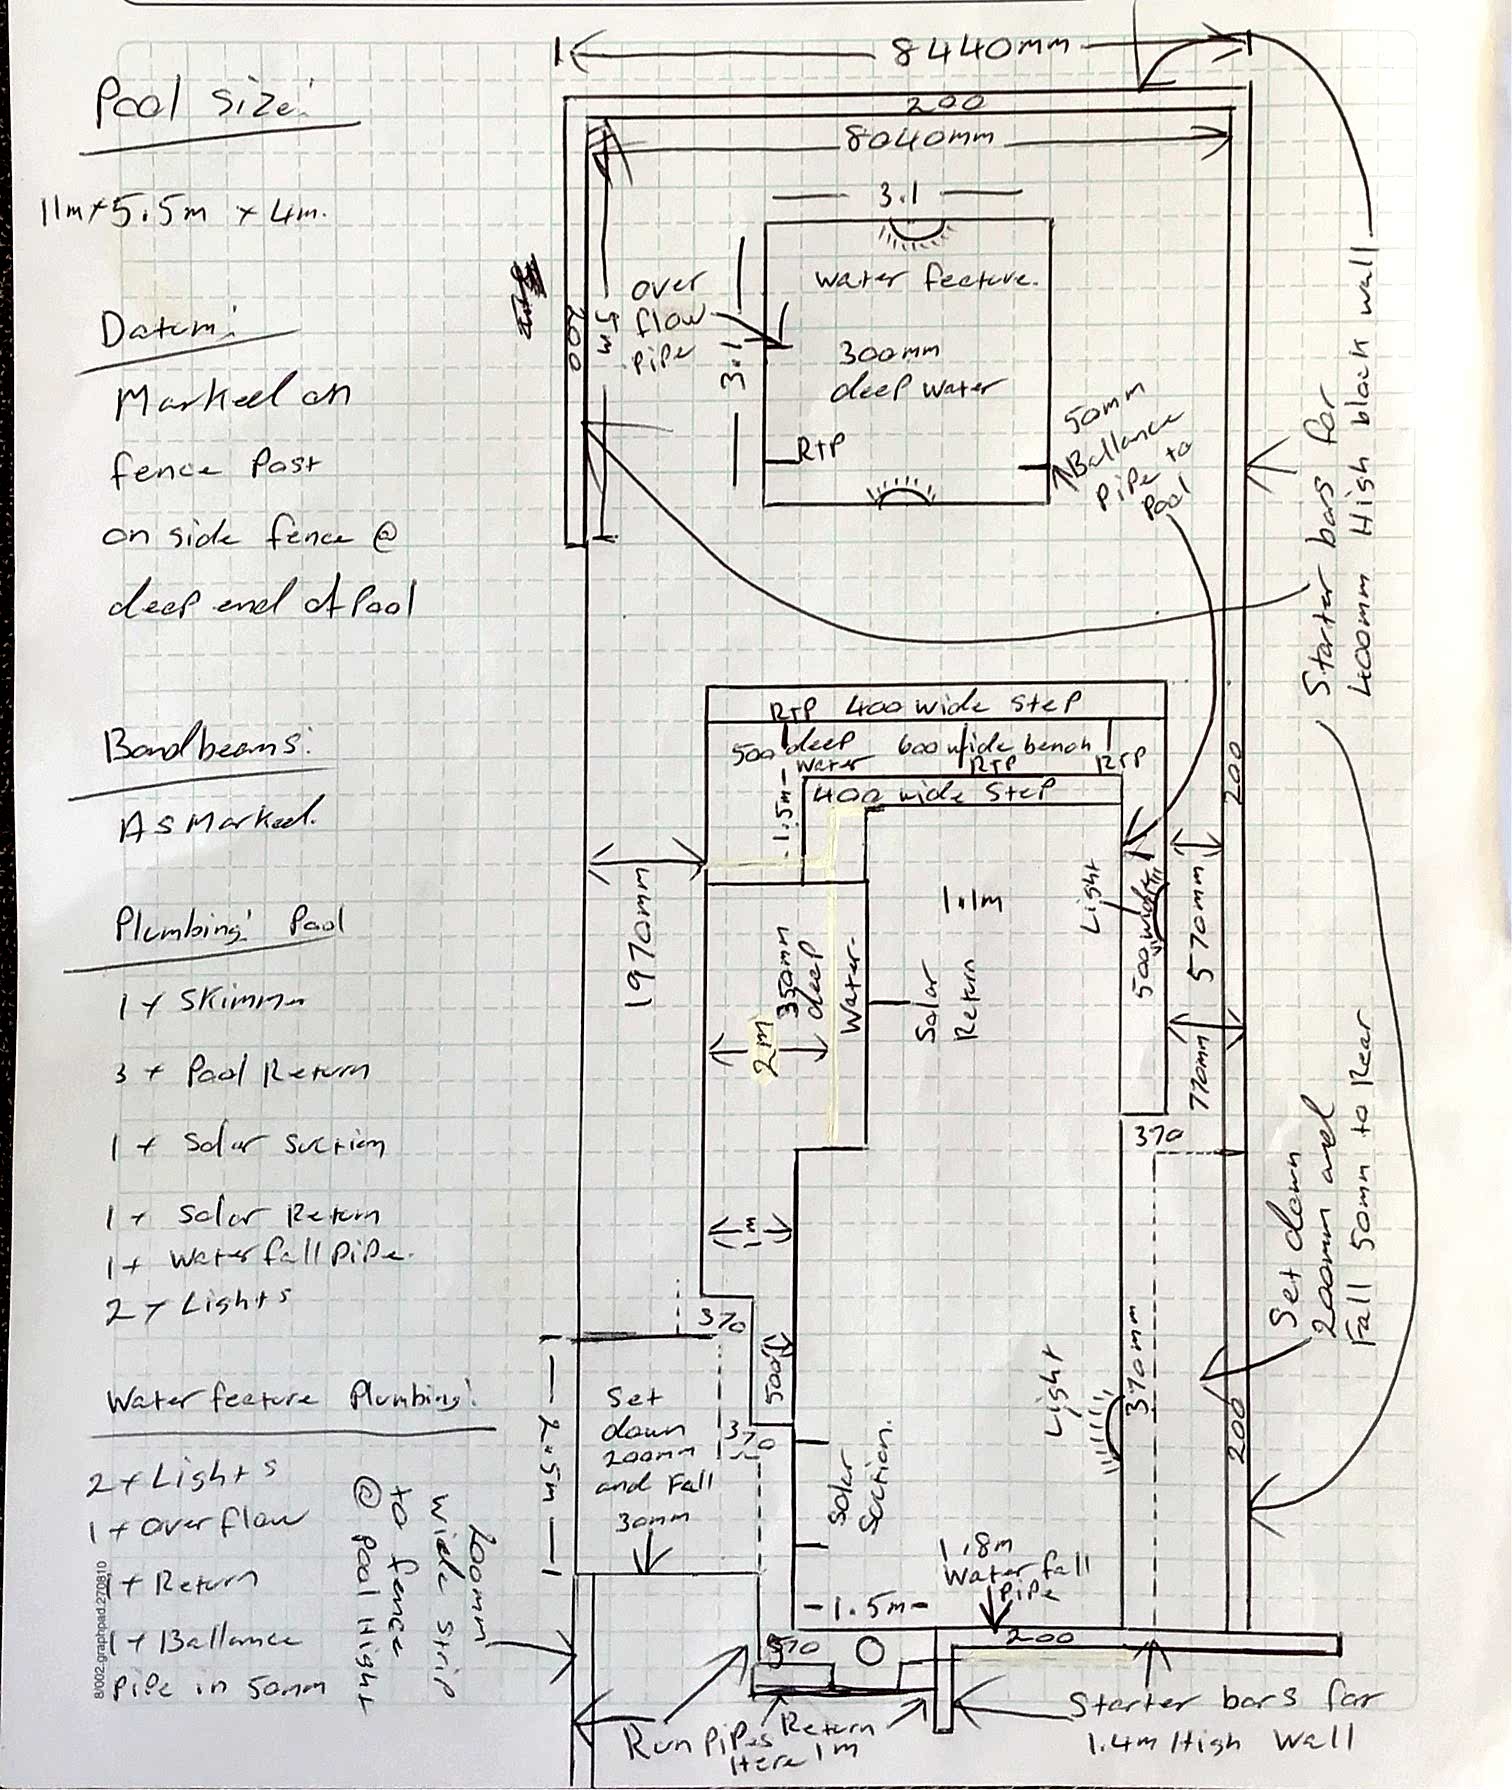 8440mm
200
8040mm
Pool size:
11m x 5.5m x 4m.
Datum:
Marked on
fence Post
on side fence @
deep end of Pool
Bondbeams:
As Marked.
Plumbing: Pool
1 x Skimmer
3 x Pool Return
1 x Solar Suction
1 x Solar Return
1 x Water fall Pipe.
2 x Lights
Water feature Plumbing:
2 x Lights
1 x Over flow
1 x Return
1 x Ballance
Pipe in 50mm
8/002.graphpad.270810
200mm
wide strip
to fence
@ Pool Hight
3.1
3.1
200
5m
over
flow
pipe
Water feature.
300mm
deep water
RTP
50mm
Ballance
Pipe to
Pool
Starter bars for
400mm High block wall
RTP 400 wide Step
500 deep
water
600 wide bench
RTP
RTP
400 wide Step
1.5m
1970mm
1.1m
Light
500 wide
570mm
200
350mm
deep
Water
2m
Solar
Return
770mm
370
Set down
200mm and
Fall 50mm to Rear
1m
370
500
2.5m
Set
down
200mm
and Fall
30mm
370
Solar
Suction.
Light
370mm
200
1.8m
Water fall
Pipe
1.5m
370
200
Run Pipes
Here
Return
1m
Starter bars for
1.4m High Wall